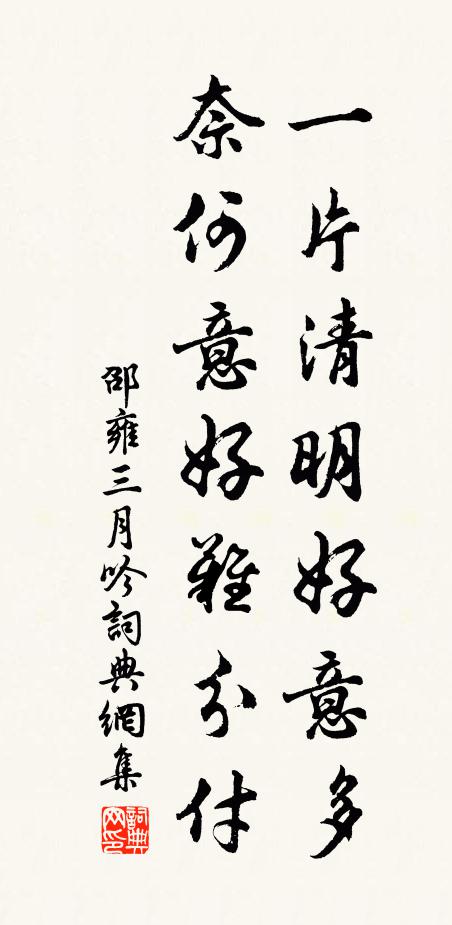 一片清明好意多
奈何意好難分付
邵雍三月吟詞典網集
詞典網印